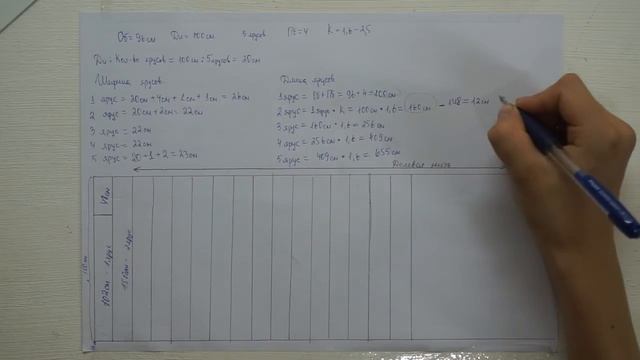 Об = 96 см Ди = 100 см 5 ярусов Пб = 4 К = 1,6 - 2,5
Ди : Кол-во ярусов = 100 см : 5 ярусов = 20 см
Ширина ярусов
1 ярус = 20см + 4см + 1см + 1см = 26см
2 ярус = 20см + 2см = 22см
3 ярус = 22см
4 ярус = 22см
5 ярус = 20 + 1 + 2 = 23см
Длина ярусов
1 ярус = Об + Пб = 96 + 4 = 100см
2 ярус = 1 ярус • К = 100см • 1,6 = 160см - 148 = 12см
3 ярус = 160см • 1,6 = 256см
4 ярус = 256см • 1,6 = 409см
5 ярус = 409см • 1,6 = 655см
Долевая нить
102см - 1 ярус